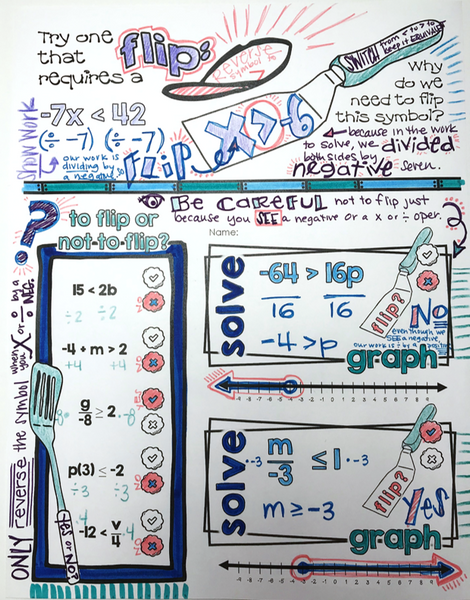 Try one
that
requires a
flip:
Reverse
symbol to
SWITCH from < to > to
keep it EQUIVALENT
Why
do we
need to flip
this symbol?
because in the work
to solve, we divided
both sides by
negative seven.
Show Work
-7x < 42
(÷ -7) (÷ -7)
our work is
dividing by
a negative, so
FLIP
x > -6
BE CAREFUL not to flip just
because you SEE a negative or a x or ÷ oper.
?
to flip or
not-to-flip?
ONLY reverse the symbol when you X or ÷ by a NEG.
15 < 2b
÷2 ÷2
-4 + m > 2
+4 +4
g/-8 ≥ 2
·-8 ·-8
YES
p(3) ≤ -2
÷3 ÷3
NO
-12 < v/4
NO
YES or NO?
Name:
solve
-64 > 16p
16 16
-4 > p
flip?
No
even though we
SEE a negative,
our work is ÷ by a positive
graph
-9 -8 -7 -6 -5 -4 -3 -2 -1 0 1 2 3 4 5 6 7 8 9
solve
·-3 m/-3 ≤ 1 ·-3
m ≥ -3
flip?
Yes
graph
-9 -8 -7 -6 -5 -4 -3 -2 -1 0 1 2 3 4 5 6 7 8 9